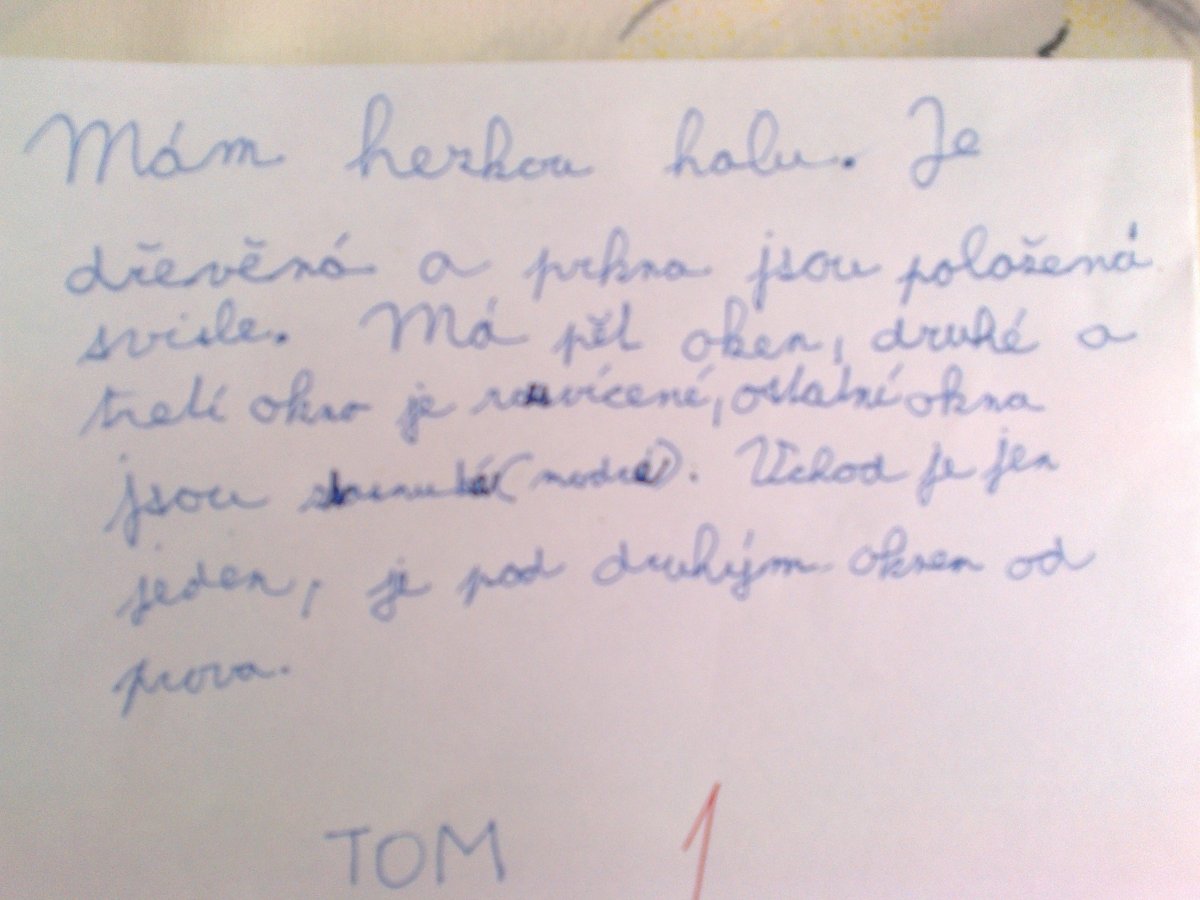 Mám hezkou halu. Je
dřevěná a prkna jsou položená
svisle. Má pět oken, druhé a
tretí okno je rozvícené, ostatní okna
jsou zhasnutá (modrá). Vchod je jen
jeden, je pod druhým oknem od
prava.
TOM 1